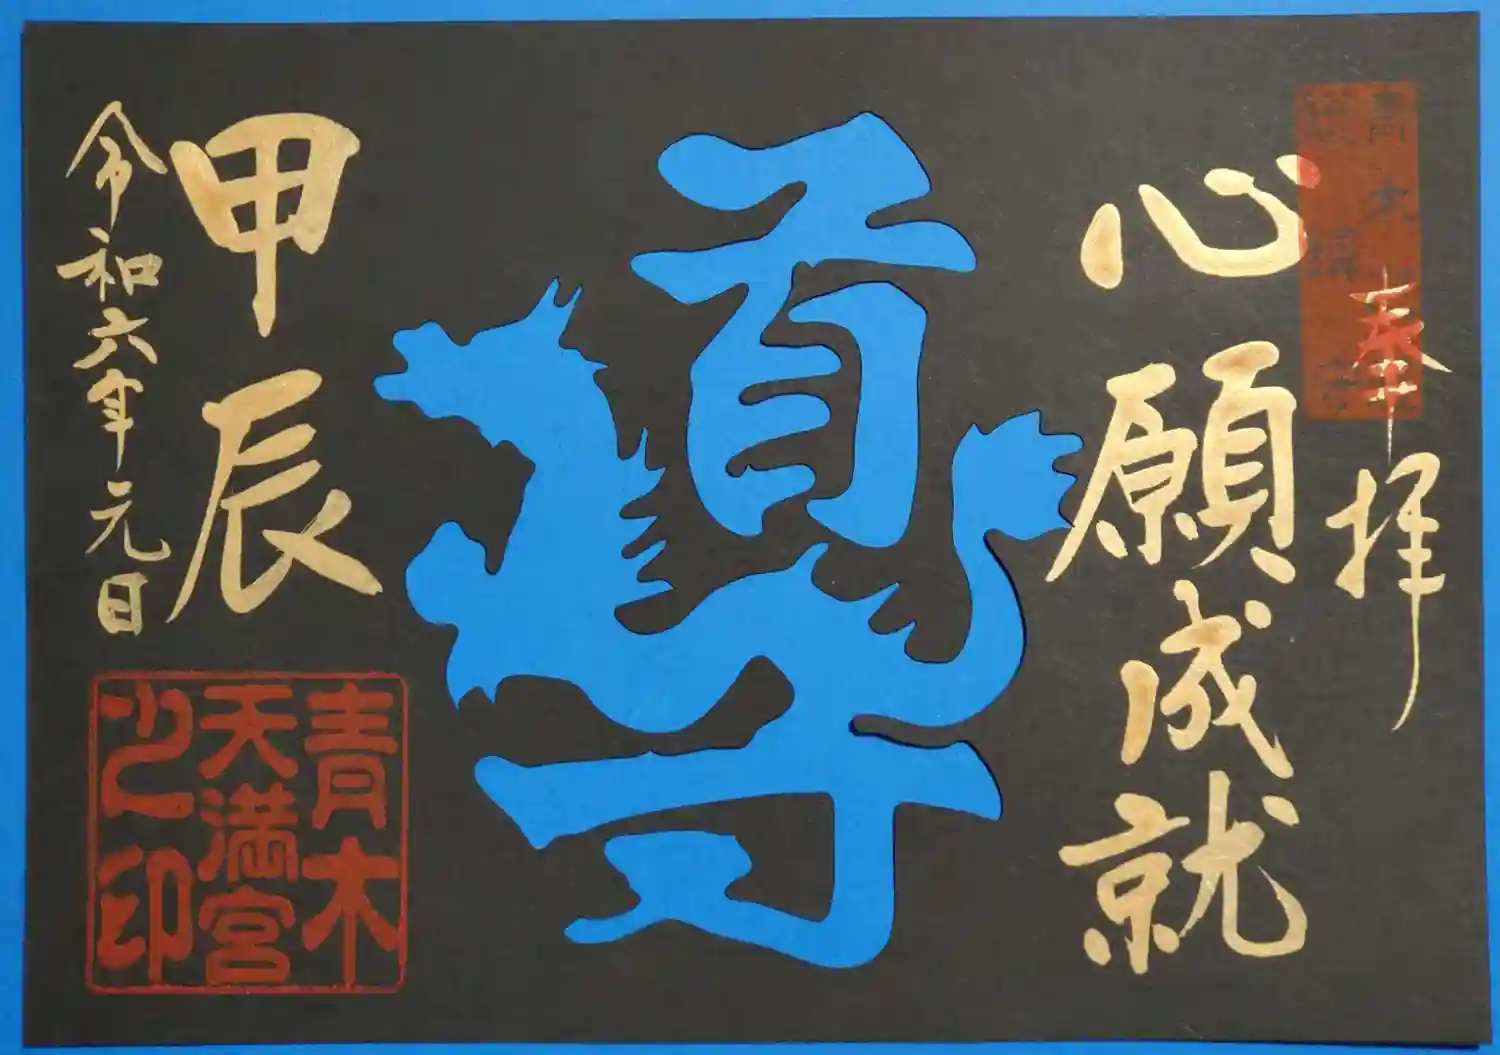 奉拝
心願成就
尊
甲辰
令和六年元日
青木
天満宮
之印